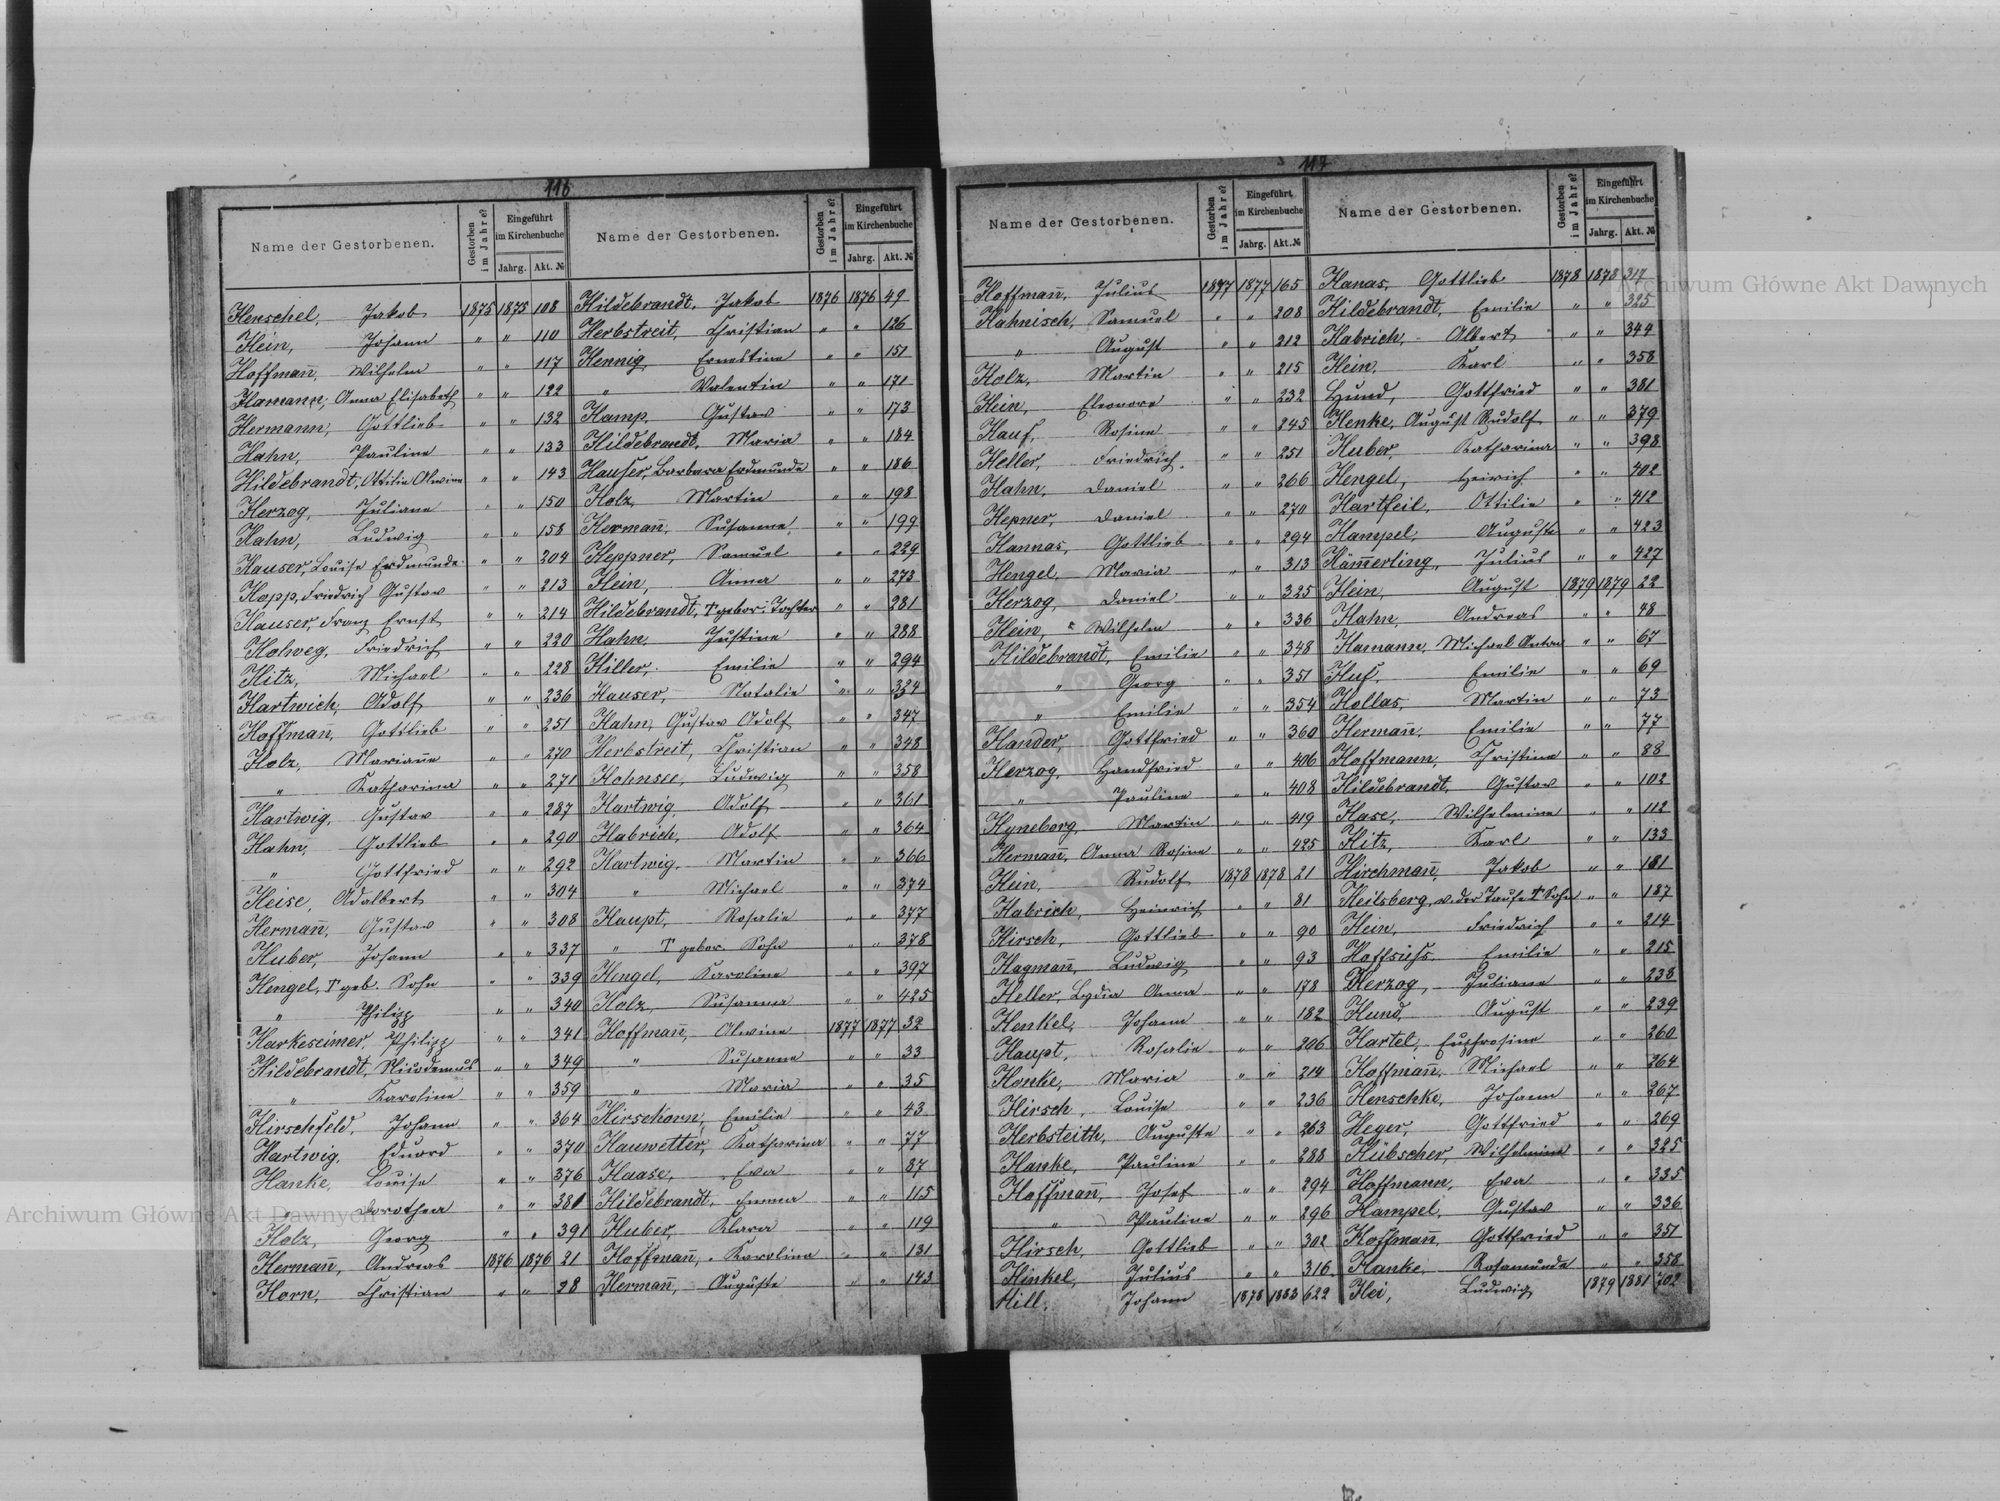 116
Name der Gestorbenen. Gestorben im Jahre? Eingeführt im Kirchenbuche Jahrg. Akt. №
Henschel, Jakob 1875 1875 108
Hein, Johann " " 110
Hoffmañ, Wilhelm " " 117
Hamann, Anna Elisabeth " " 122
Hermann, Gottlieb " " 132
Hahn, Pauline " " 133
Hildebrandt, Ottilie Olwine " " 143
Herzog, Juliane " " 150
Hahn, Ludwig " " 158
Hauser, Louise Erdmunde " " 204
Hopp, Friedrich Gustav " " 213
Hauser, Franz Ernst " " 214
Holweg, Friedrich " " 220
Hitz, Michael " " 228
Hartwich, Adolf " " 236
Hoffman, Gottlieb " " 251
Holz, Mariañe " " 270
" Katharina " " 271
Hartwig, Gustav " " 287
Hahn, Gottlieb " " 290
" Gottfried " " 292
Heise, Adalbert " " 304
Hermañ, Gustav " " 308
Huber, Johann " " 337
Hengel, † geb. Sohn " " 339
" Philipp " " 340
Harkeseimer, Philipp " " 341
Hildebrandt, Nicodemus " " 349
" Karoline " " 359
Hirschfeld, Johann " " 364
Hartwig, Eduard " " 370
Hanke, Louise " " 376
" Dorothea " " 381
Holz, Georg " " 391
Hermañ, Andreas 1876 1876 21
Horn, Christian " " 28
Name der Gestorbenen. Gestorben im Jahre? Eingeführt im Kirchenbuche Jahrg. Akt. №
Hildebrandt, Jakob 1876 1876 49
Herbstreit, Christian " " 126
Hennig, Ernestine " " 151
" Valentin " " 171
Hamp, Gustav " " 173
Hildebrandt, Maria " " 184
Hauser, Barbara Erdmunde " " 186
Holz, Martin " " 198
Hermañ, Susanne " " 199
Heppner, Samuel " " 229
Hein, Anna " " 273
Hildebrandt, † gebor. Tochter " " 281
Hahn, Justine " " 288
Hiller, Emilie " " 294
Hauser, Natalie " " 334
Hahn, Gustav Adolf " " 347
Herbstreit, Christian " " 348
Hohnsee, Ludwig " " 358
Hartwig, Adolf " " 361
Habrich, Adolf " " 364
Hartwig, Martin " " 366
" Michael " " 374
Haupt, Rosalie " " 377
" † gebor. Sohn " " 378
Hengel, Karoline " " 397
Holz, Susanna " " 425
Hoffmañ, Olwine 1877 1877 32
" Susanne " " 33
" Maria " " 35
Hirschorn, Emilie " " 43
Hauwetter, Katharina " " 77
Haase, Eva " " 87
Hildebrandt, Emma " " 115
Huber, Klara " " 119
Hoffmañ, Karolina " " 131
Hermañ, Auguste " " 143
117
Name der Gestorbenen. Gestorben im Jahre? Eingeführt im Kirchenbuche Jahrg. Akt. №
Hoffmañ, Julius 1877 1877 165
Hahnisch, Samuel " " 208
" August " " 212
Holz, Martin " " 215
Hein, Eleonore " " 232
Hauf, Rosine " " 245
Heller, Friedrich " " 251
Hahn, Daniel " " 266
Hepner, Daniel " " 270
Hannas, Gottlieb " " 294
Hengel, Maria " " 313
Herzog, Daniel " " 325
Hein, Wilhelm " " 336
Hildebrandt, Emilie " " 348
" Georg " " 351
" Emilie " " 354
Hander, Gottfried " " 360
Herzog, Handfried " " 406
" Pauline " " 408
Hyneborg, Martin " " 419
Hermañ, Anna Rosine " " 425
Hein, Rudolf 1878 1878 21
Habrich, Heinrich " " 81
Hirsch, Gottlieb " " 90
Hagmañ, Ludwig " " 93
Heller, Lydia Anna " " 178
Henkel, Johann " " 182
Haupt, Rosalie " " 206
Honke, Maria " " 214
Hirsch, Louise " " 236
Herbsteith, Auguste " " 263
Hanke, Pauline " " 288
Hoffmañ, Josef " " 294
" Pauline " " 296
Hirsch, Gottlieb " " 302
Hinkel, Julius " " 316
Hill, Johann 1878 1883 622
Name der Gestorbenen. Gestorben im Jahre? Eingeführt im Kirchenbuche Jahrg. Akt. №
Hanas, Gottlieb 1878 1878 317
Hildebrandt, Emilie " " 325
Habrich, Albert " " 344
Hein, Karl " " 358
Hund, Gottfried " " 381
Henke, August Rudolf " " 379
Huber, Katharina " " 398
Hengel, Heirich " " 402
Hartfeil, Ottilie " " 412
Hampel, Auguste " " 423
Häm̄erling, Julius " " 427
Hein, August 1879 1879 22
Hahn, Andreas " " 48
Hamann, Michael Anton " " 67
Huf, Emilie " " 69
Hollas, Martin " " 73
Hermañ, Emilie " " 77
Hoffmann, Christine " " 88
Hildebrandt, Gustav " " 102
Hase, Wilhelmine " " 112
Hitz, Karl " " 133
Hirchmañ, Jakob " " 181
Heilsberg, v. der Taufe † Sohn " " 187
Hein, Friedrich " " 214
Emilie " " 215
Herzog, Juliane " " 238
Hund, August " " 239
Hartel, Eufrosine " " 260
Hoffmañ, Michael " " 264
Henschke, Johann " " 267
Heyer, Gottfried " " 269
Hübscher, Wilhelmine " " 325
Hoffmann, Eva " " 335
Hampel, Gustav " " 336
Hoffmañ, Gottfried " " 351
Hanke, Rosamunde " " 358
Hei, Ludwig 1879 1881 702
Archiwum Główne Akt Dawnych
Archiwum Główne Akt Dawnych